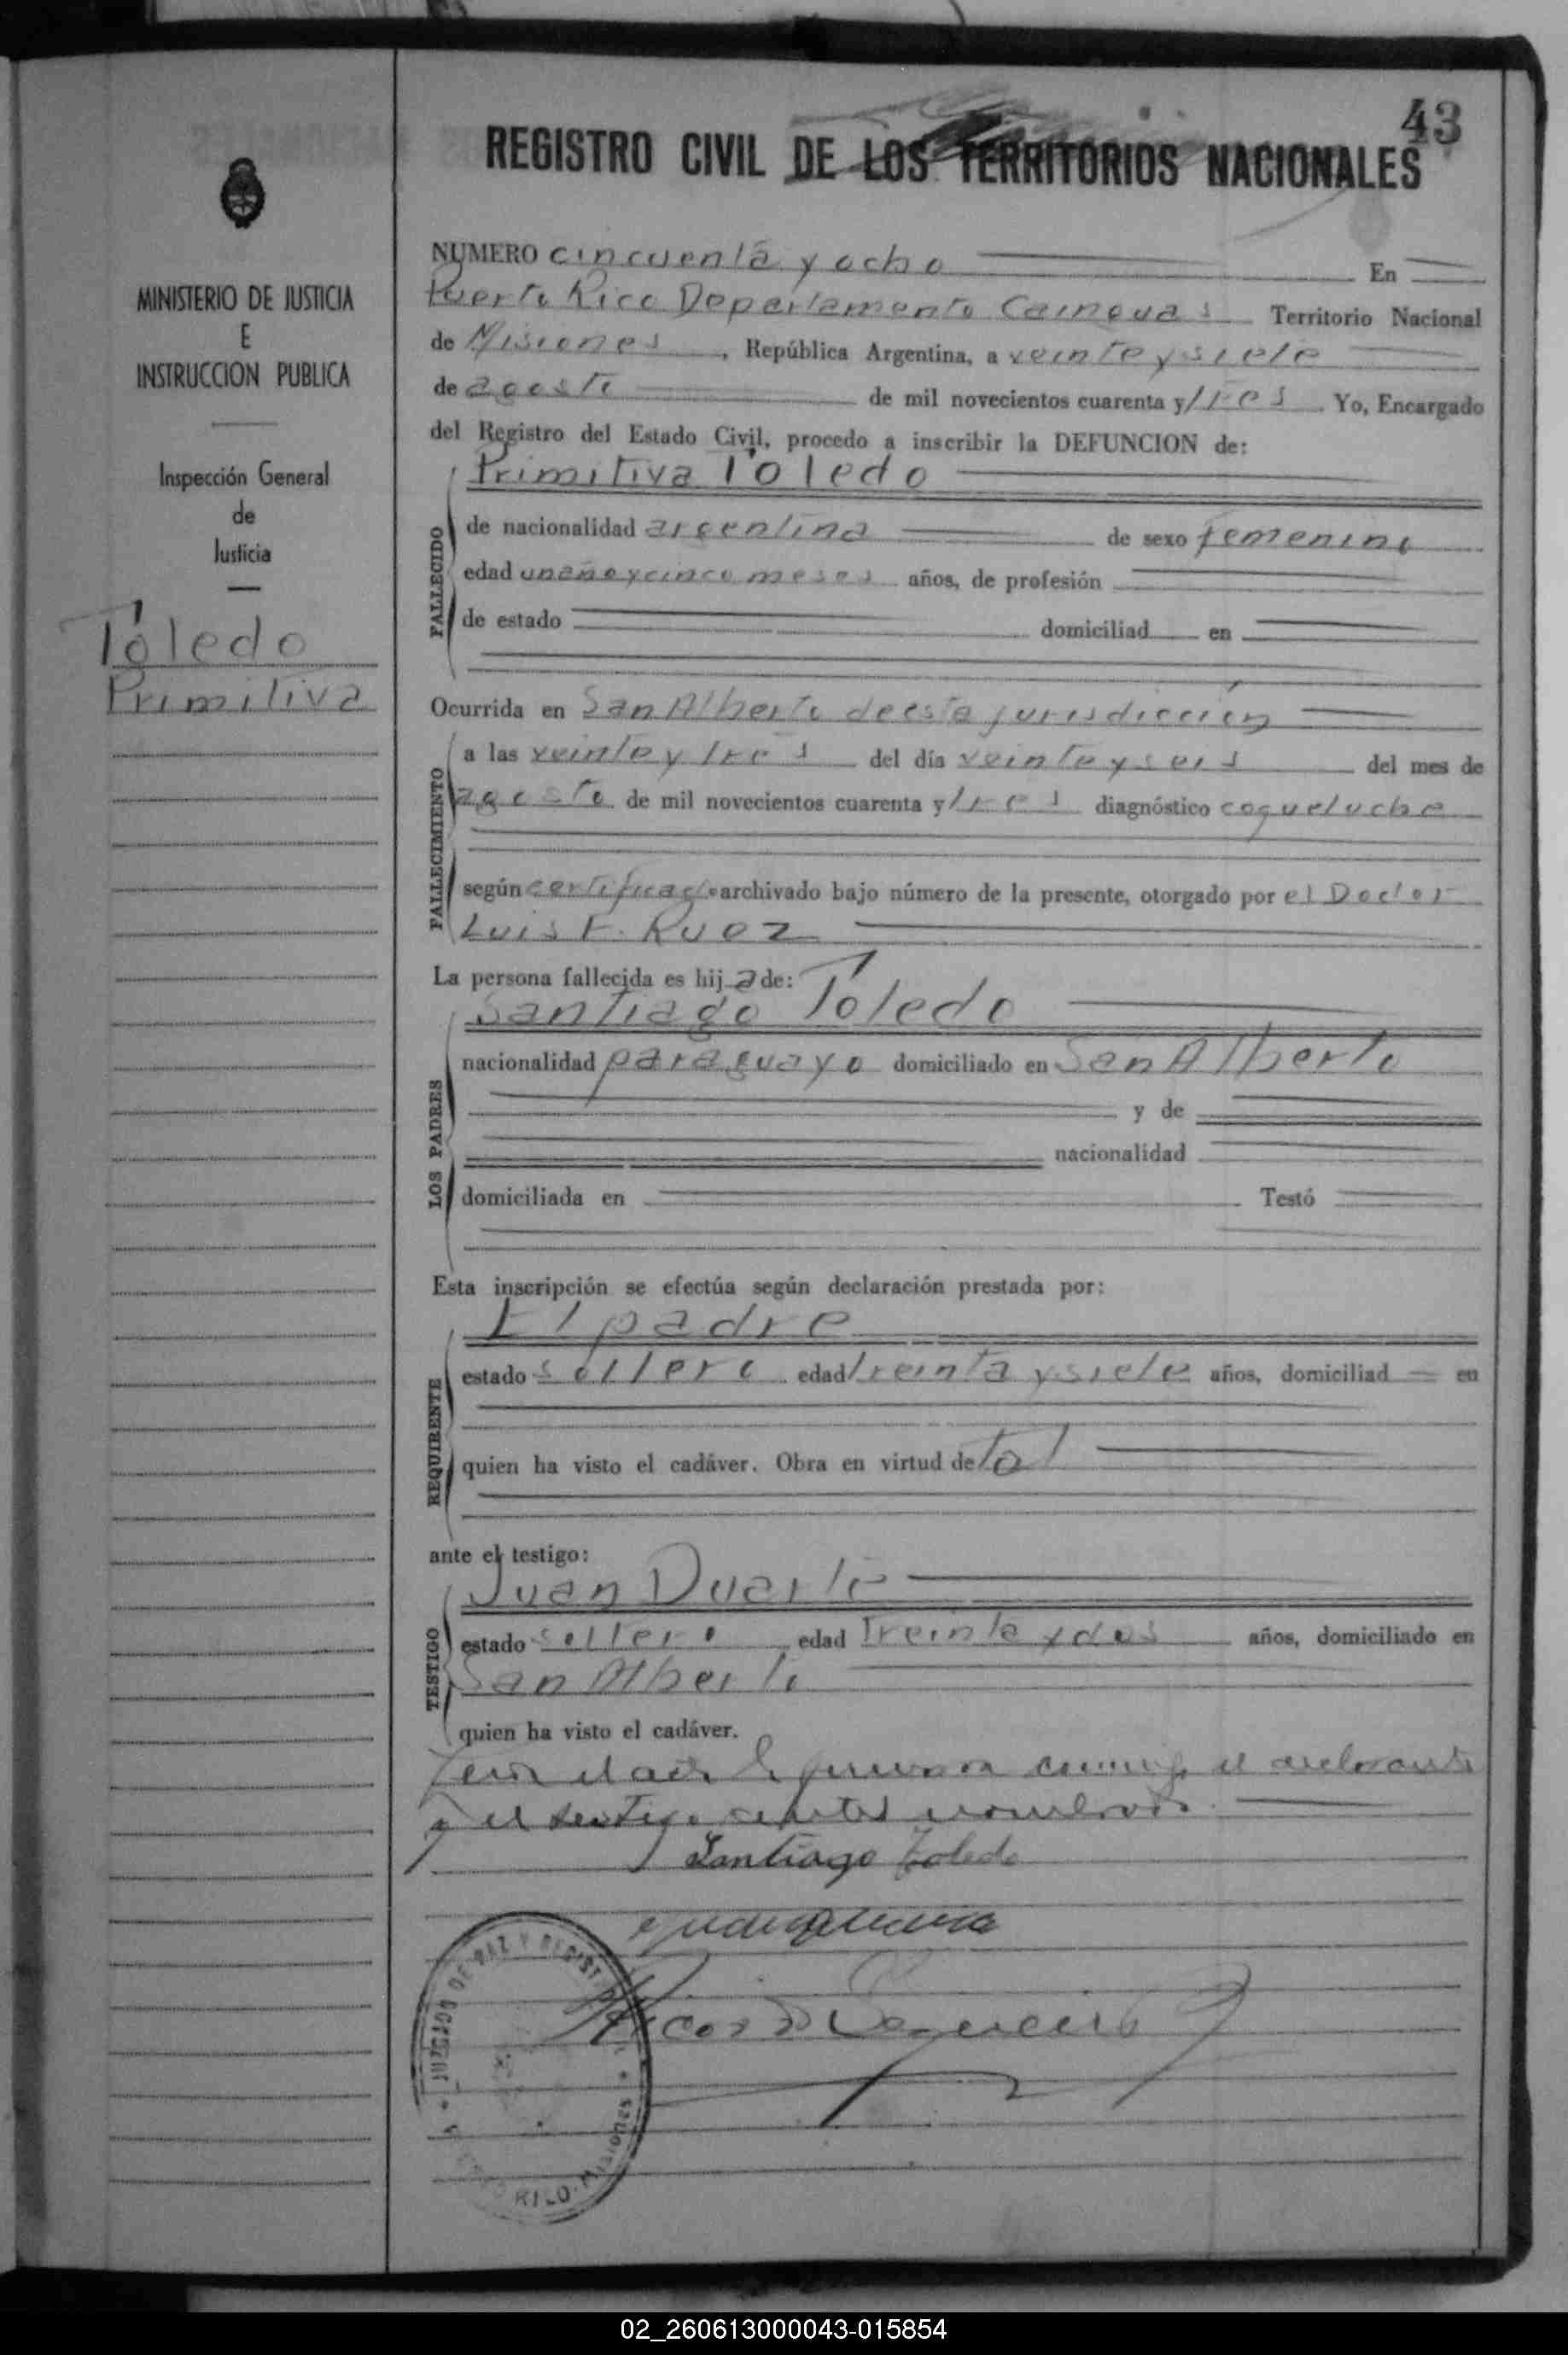 43
REGISTRO CIVIL DE LOS TERRITORIOS NACIONALES
MINISTERIO DE JUSTICIA
E
INSTRUCCION PUBLICA
Inspección General
de
Justicia
Toledo
Primitiva
NUMERO cincuenta y ocho En
Puerto Rico Departamento Cainguas Territorio Nacional
de Misiones, República Argentina, a veinte y siete
de agosto de mil novecientos cuarenta y tres. Yo, Encargado
del Registro del Estado Civil, procedo a inscribir la DEFUNCION de:
Primitiva Toledo
FALLECIDO
de nacionalidad argentina de sexo femenino
edad un año y cinco meses años, de profesión
de estado domiciliad en
Ocurrida en San Alberto de esta jurisdicción
FALLECIMIENTO
a las veinte y tres del día veinte y seis del mes de
agosto de mil novecientos cuarenta y tres diagnóstico coqueluche
según certificado archivado bajo número de la presente, otorgado por el Doctor
Luis F.
La persona fallecida es hija de:
Santiago Toledo
LOS PADRES
nacionalidad paraguayo domiciliado en San Alberto
y de
nacionalidad
domiciliada en Testó
Esta inscripción se efectúa según declaración prestada por:
El padre
REQUIRENTE
estado soltero edad treinta y siete años, domiciliad en
quien ha visto el cadáver. Obra en virtud de tal
ante el testigo:
Juan Duarte
TESTIGO
estado soltero edad treinta y dos años, domiciliado en
San Alberto
quien ha visto el cadáver.
el acta la conmigo el declarante
y el testigo
Santiago Toledo
JUZGADO DE PAZ Y REGISTRO
RICO. MISIONES
02_260613000043-015854